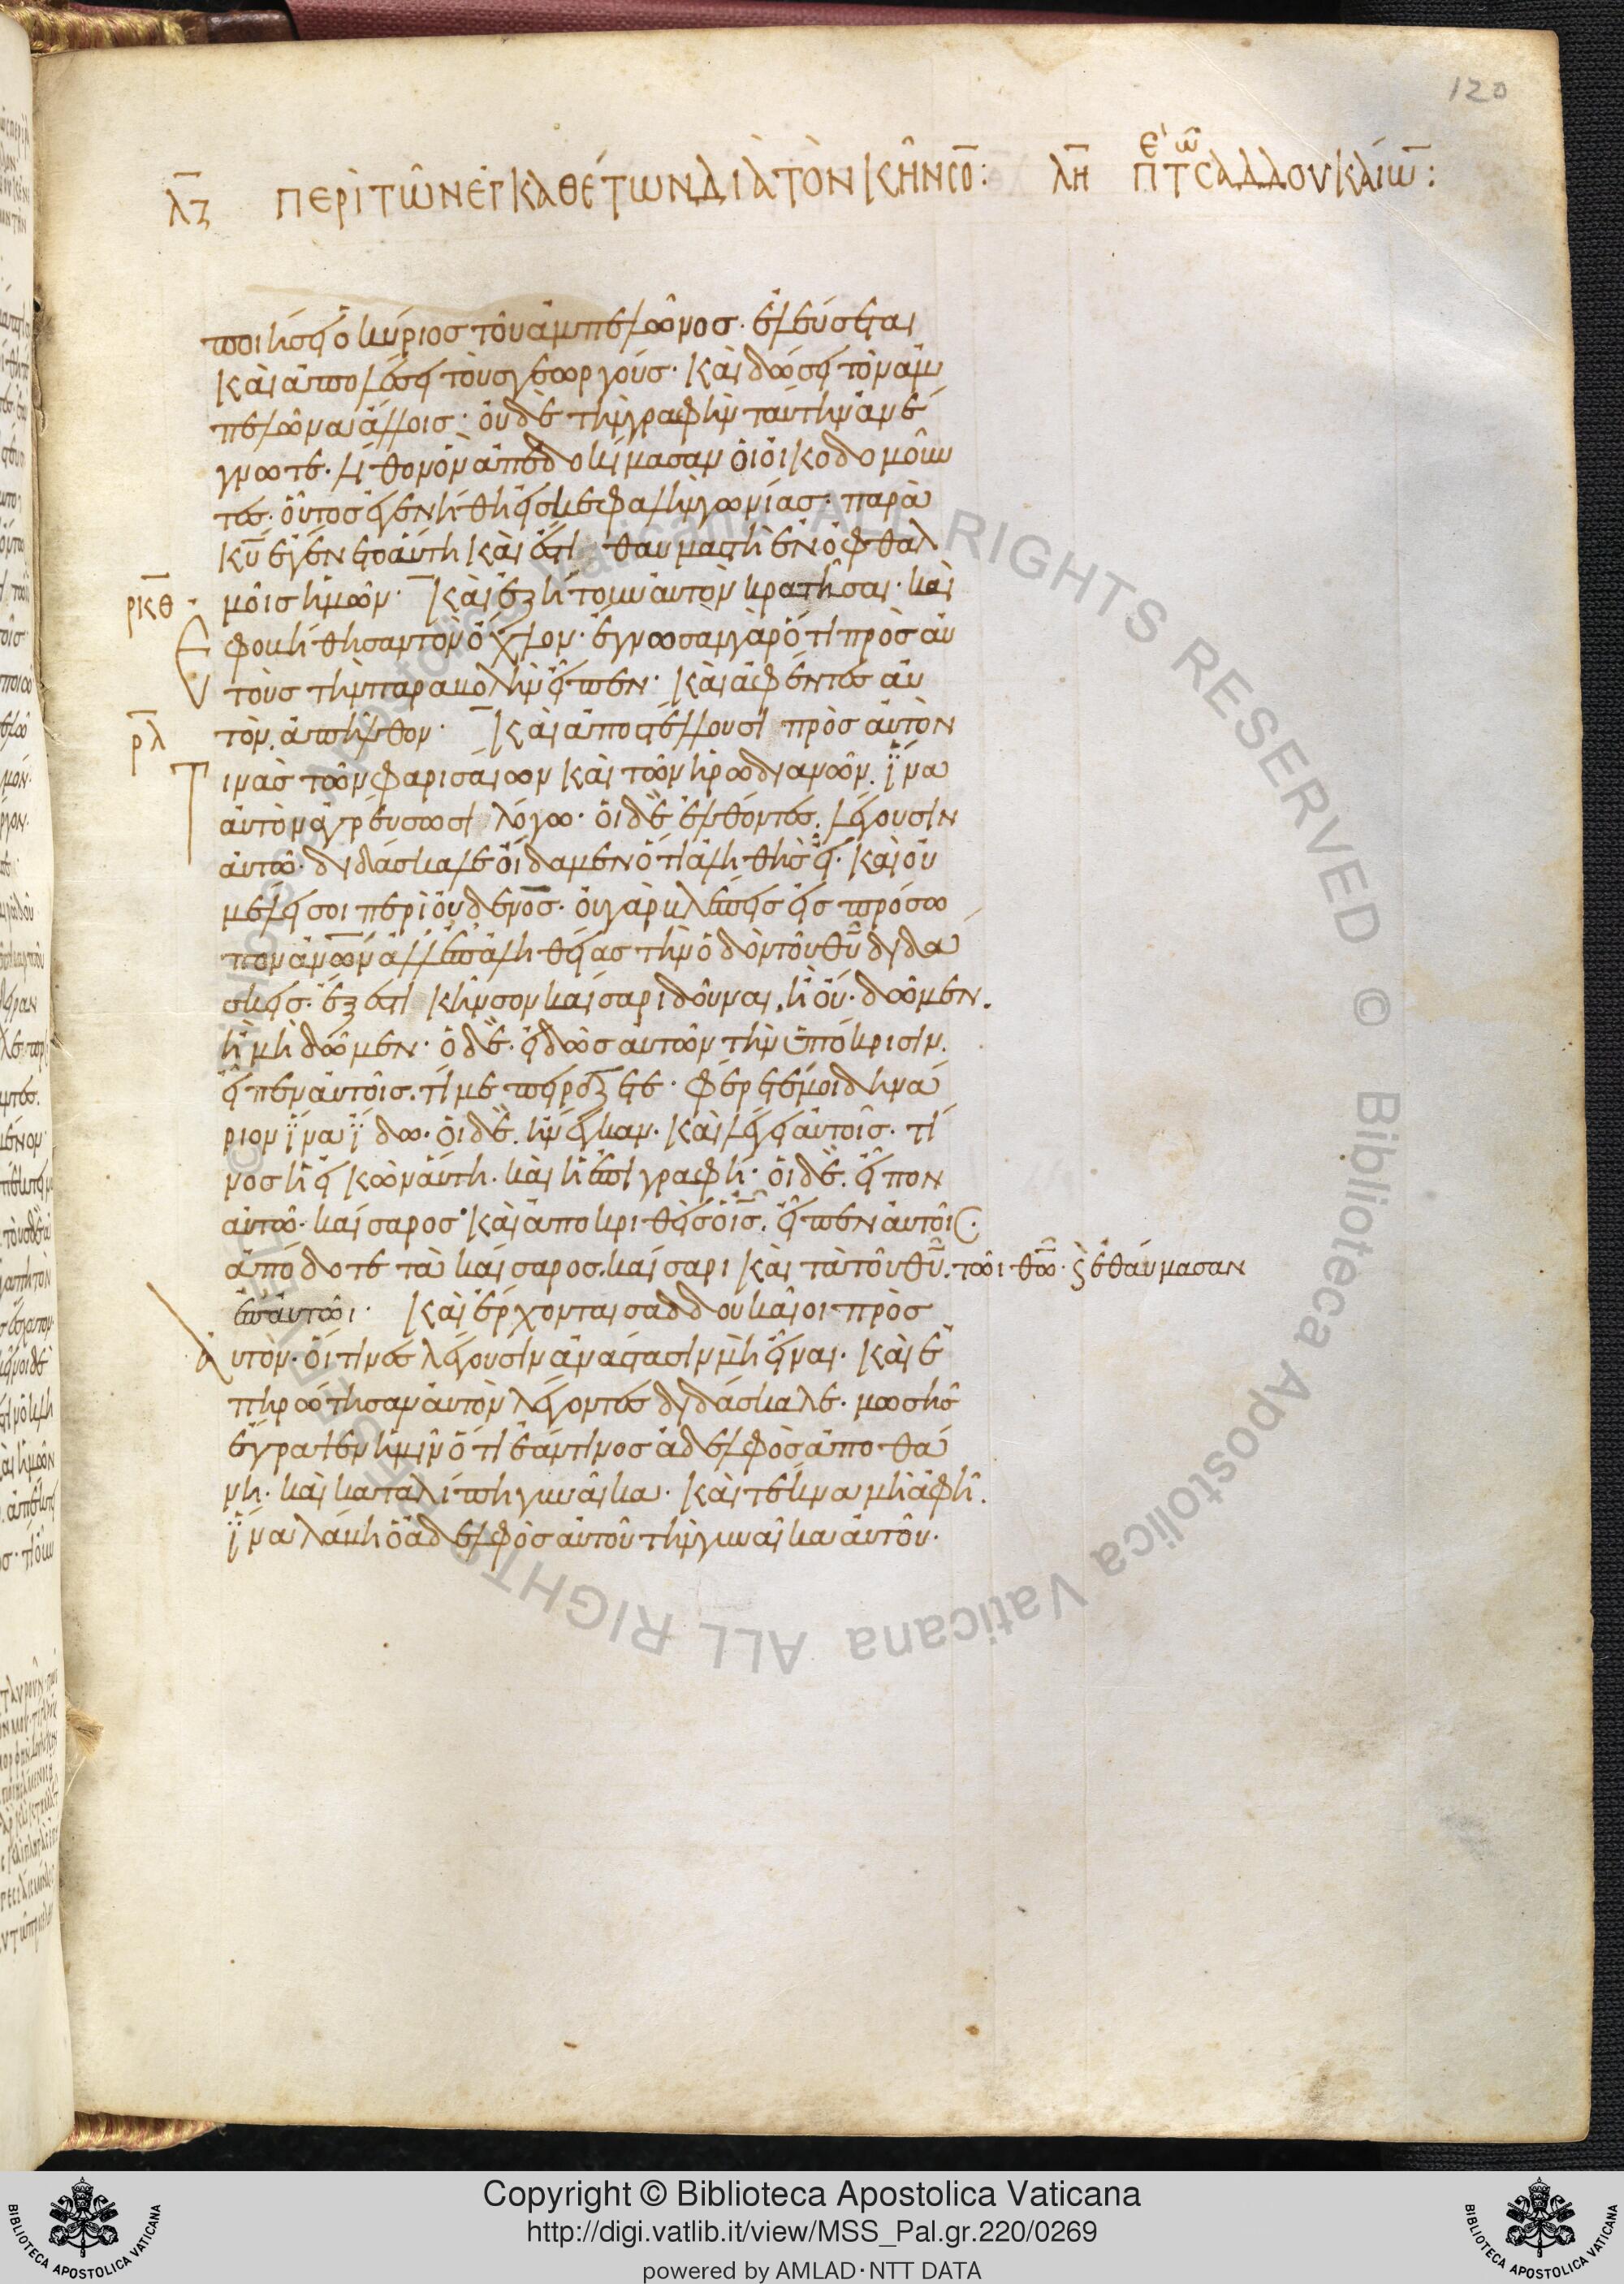 120
λζ ΠΕΡῚ ΤΩ͂Ν ἘΓΚΑΘΈΤΩΝ ΔΙᾺ ΤῸΝ ΚΗ͂ΝCΟ̅: λη ΠΕ' ΤΩ͂ CΑΔΔΟΥΚΑΊΩ̅:
ποιήσει ὁ κύριοσ τοῦ ἀμπελῶνοσ· ἐλεύσεται
καὶ ἀπολέσει τοὺσ γεωργούσ· καὶ δώσει τὸν ἀμ
πελῶνα ἄλλοισ· οὐδὲ τὴν γραφὴν ταύτην ἀνέ
γνωτε· λίθον ὃν ἀπεδοκίμασαν οἱ οἰκοδομοῦν
τεσ· οὗτοσ ἐγενήθη εἰσ κεφαλὴν γωνίασ· παρὰ
κ̅υ̅ ἐγένετο αὕτη καὶ ἔστι θαυμαστὴ ἐν ὀφθαλ
ρκθ μοῖσ ἡμῶν· καὶ ἐζήτουν αὐτὸν κρατῆσαι· καὶ
Ἐφοβήθησαν τὸν ὄχλον· ἔγνωσαν γὰρ ὅτι πρὸσ αὐ
τοὺσ τὴν παραβολὴν εἶπεν· καὶ ἀφέντεσ αὐ
ρλ τὸν. ἀπῆλθον· καὶ ἀποστέλλουσι πρὸσ αὐτὸν
Τινὰσ τῶν φαρισαίων καὶ τῶν ἡρωδιανῶν. ἵνα
αὐτὸν ἀγρεύσωσι λόγω· οἱ δὲ ἐλθόντεσ. λέγουσιν
αὐτῶ· διδάσκαλε οἴδαμεν ὅτι ἀληθὴσ εἶ· καὶ οὐ
μέλει σοι περὶ οὐδενόσ· οὐ γὰρ βλέπεισ εἰσ πρόσω
πον ἀ̅ν̅ω̅ν̅ ἀλλ' ἐπ' ἀληθείασ τὴν ὁδὸν τοῦ θ̅υ̅ διδά
σκεισ· ἔξεστι κῆνσον καίσαρι δοῦναι. ἢ οὔ· δῶμεν.
ἢ μὴ δῶμεν· ὁ δὲ. εἰδὼσ αὐτῶν τὴν ὑπόκρισιν.
εἶπεν αὐτοῖσ. τί με πειράζετε· φέρετέ μοι δηνά
ριον ἵνα ἴδω· οἱ δὲ. ἤνεγκαν· καὶ λέγει αὐτοῖσ· τί
νοσ ἡ εἰκὼν αὕτη· καὶ ἡ ἐπιγραφή· οἱ δὲ. εἶπον
αὐτῶ· καίσαροσ· καὶ ἀποκριθεὶσ ὁ ι̅σ̅. εἶπεν αὐτοῖσ·
ἀπόδοτε τὰ καίσαροσ. καίσαρι καὶ τὰ τοῦ θ̅υ̅. τῶι θ̅ω̅· ϗ ἐθαύμασαν
ἐπ' αὐτῶι· καὶ ἔρχονται σαδδουκαῖοι πρὸσ
Αὐτὸν· οἵτινεσ λέγουσιν ἀνάστασιν μὴ εἶναι· καὶ ἐ
πηρώτησαν αὐτὸν λέγοντεσ διδάσκαλε· μωσῆσ
ἔγραψεν ἡμῖν ὅτι ἐάν τινοσ ἀδελφὸσ ἀποθά
νη· καὶ καταλίπη γυναῖκα· καὶ τέκνα μὴ ἀφῆ.
ἵνα λάβη ὁ ἀδελφὸσ αὐτοῦ τὴν γυναῖκα αὐτοῦ·
Copyright © Biblioteca Apostolica Vaticana
http://digi.vatlib.it/view/MSS_Pal.gr.220/0269
powered by AMLAD·NTT DATA